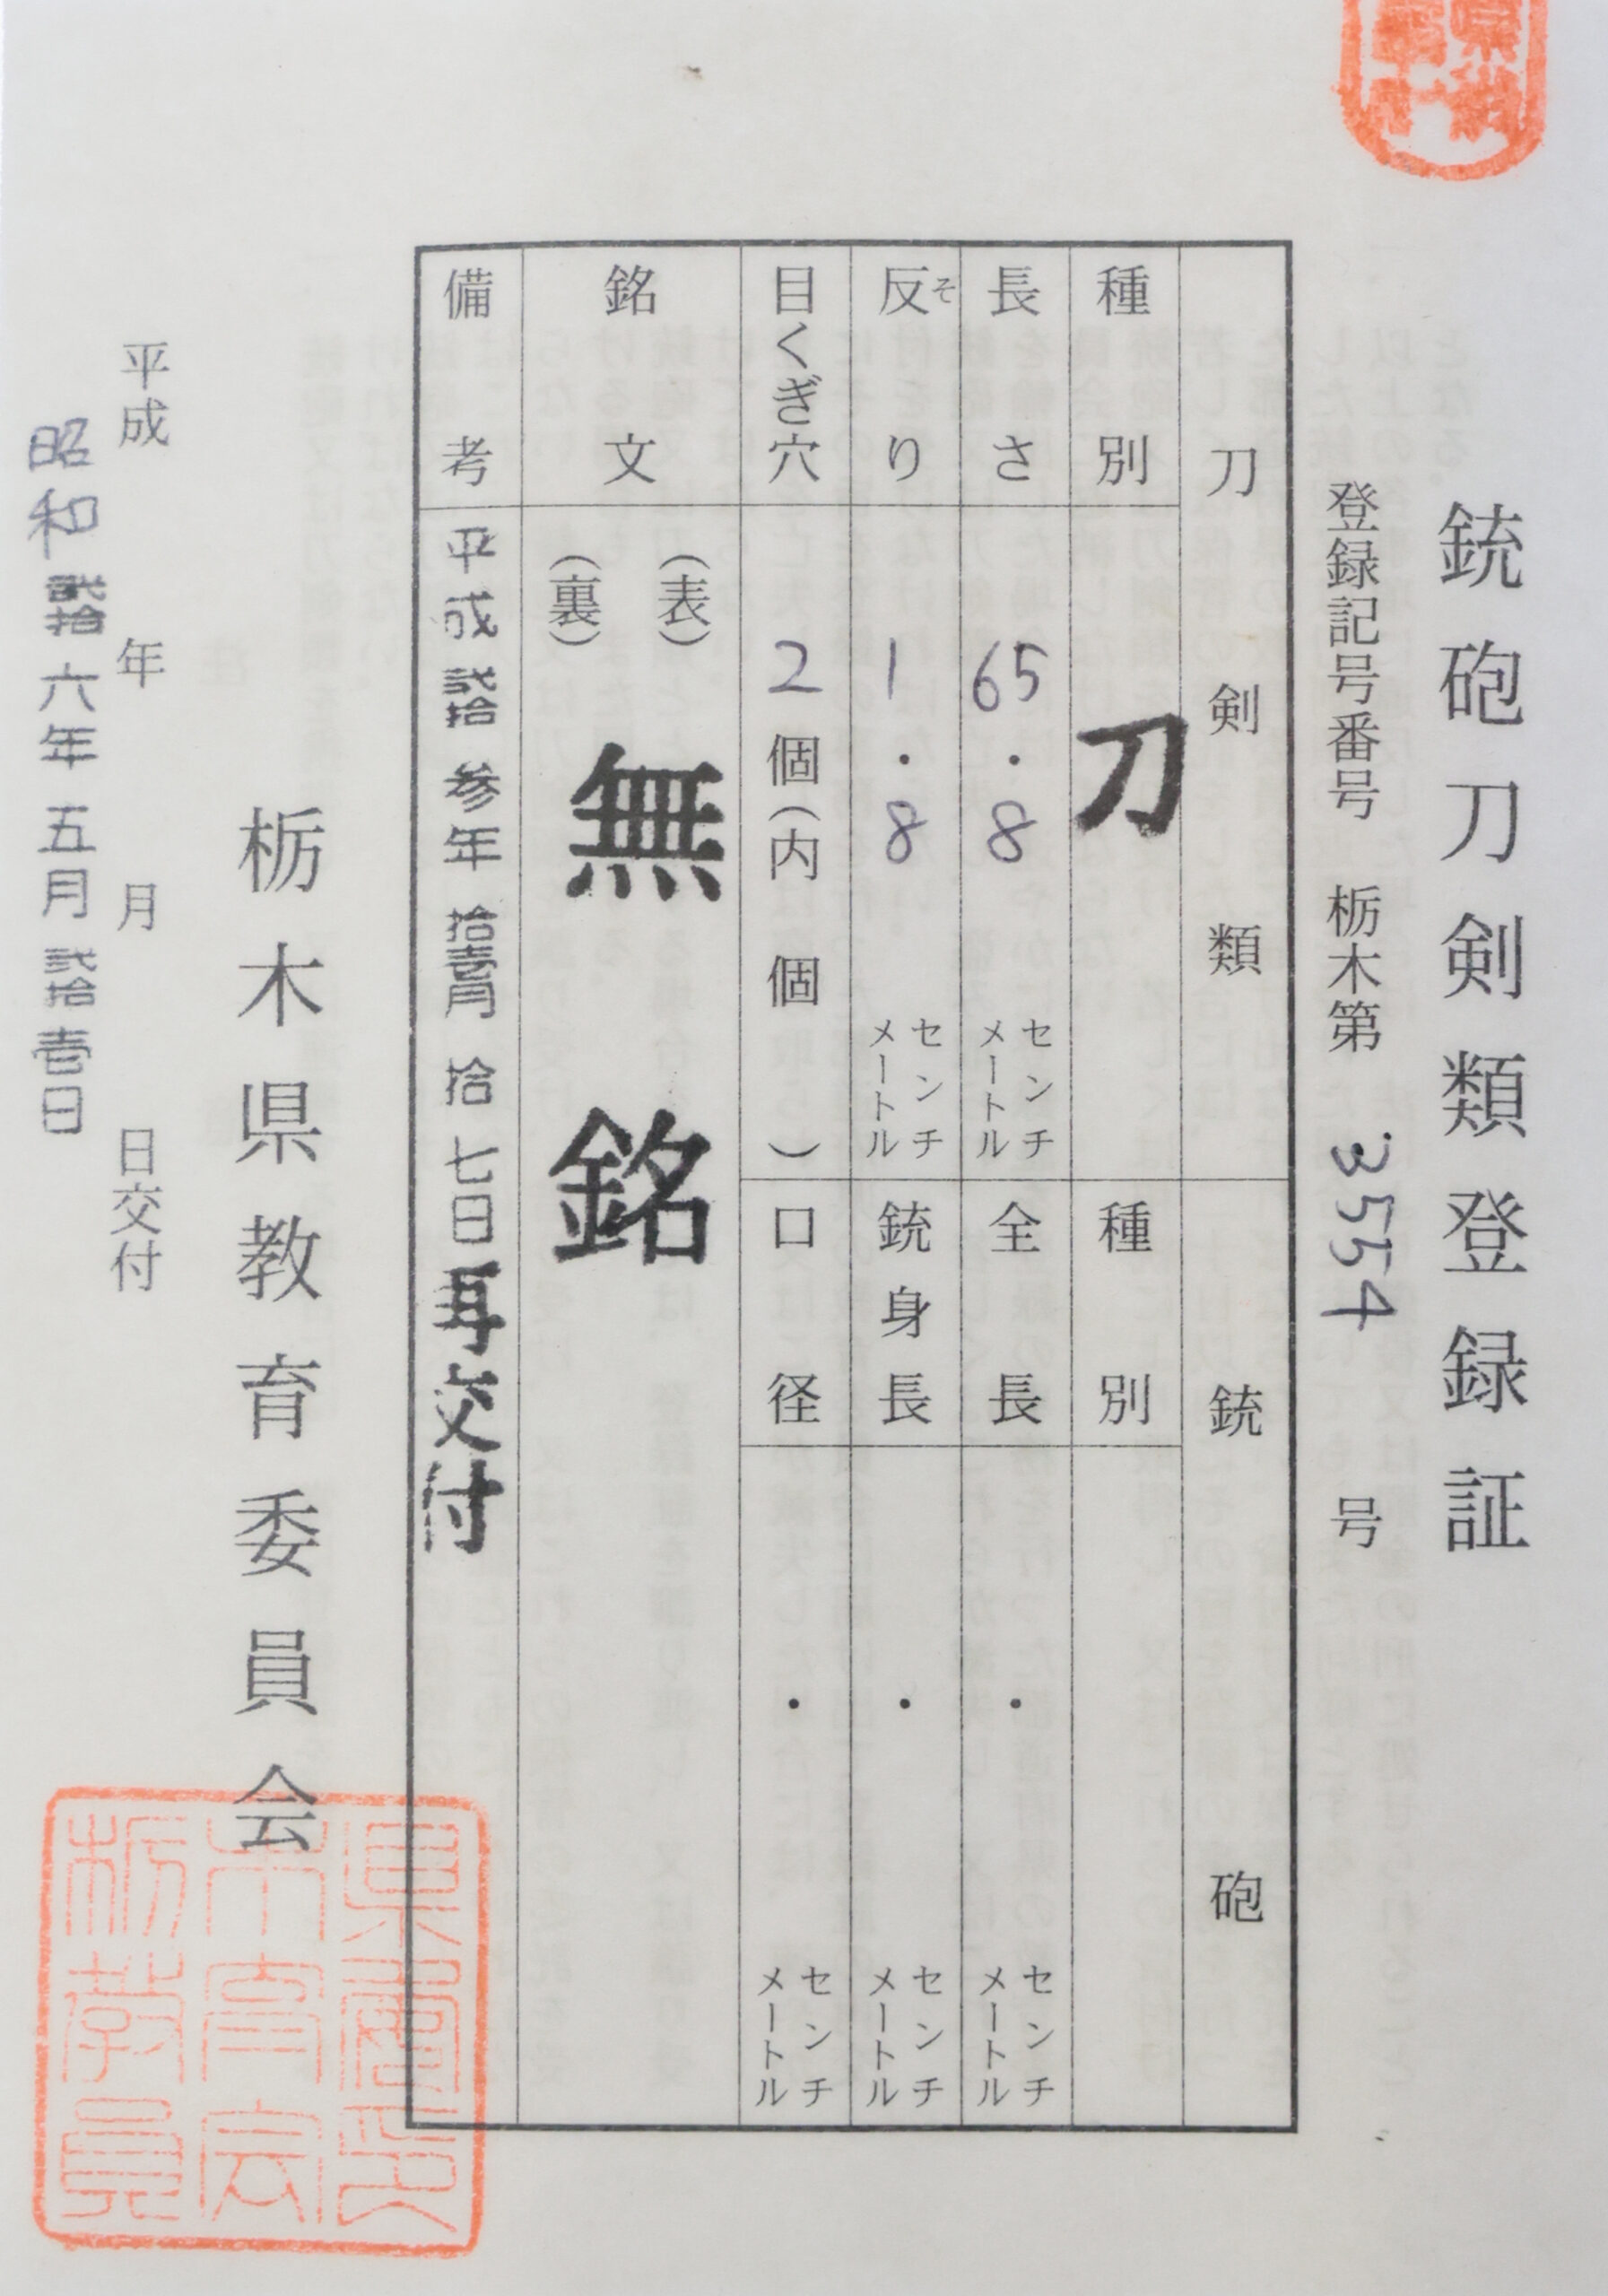 銃砲刀剣類登録証
登録記号番号 栃木第 3554 号
刀剣類
銃砲
種別 刀
種別
長さ 65.8 センチメートル
全長 ・ センチメートル
反り そ 1.8 センチメートル
銃身長 ・ センチメートル
目くぎ穴 2個(内 個)
口径 ・ センチメートル
銘文 (表) (裏) 無銘
備考 平成弐拾参年拾壱月拾七日再交付
栃木県教育委員会
平成 年 月 日交付
昭和弐拾六年五月弐拾壱日